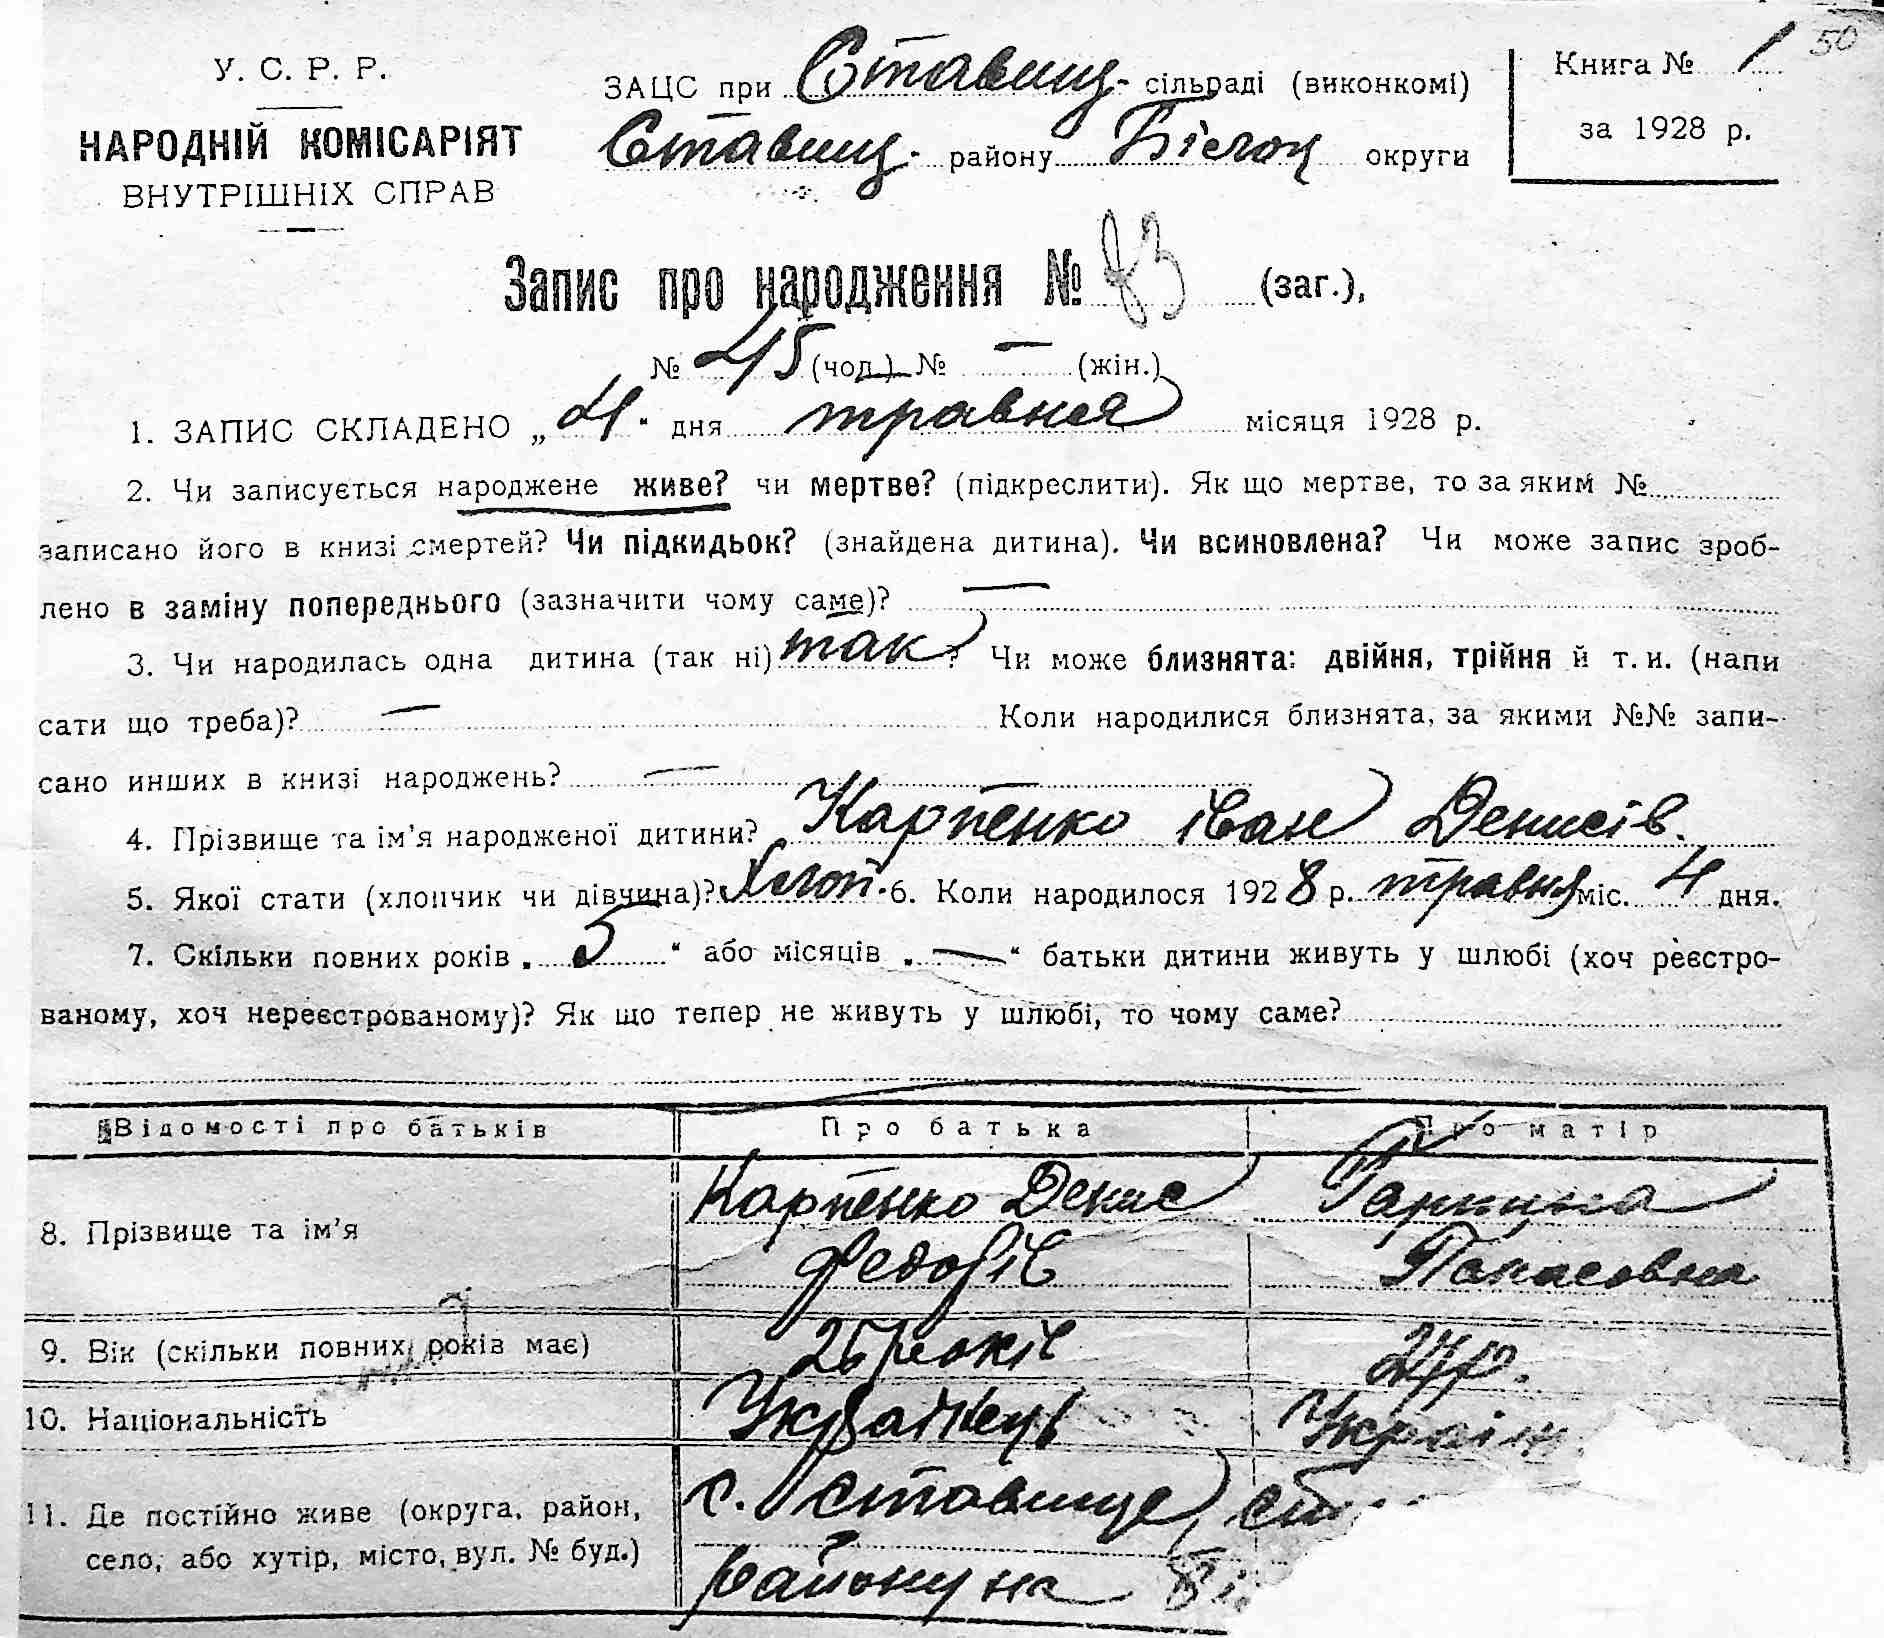 50
У. С. Р. Р.
НАРОДНІЙ КОМІСАРІЯТ
ВНУТРІШНІХ СПРАВ
ЗАЦС при Ставищ- сільраді (виконкомі)
Ставищ. району Білоц округи
Книга № 1
за 1928 р.
Запис про народження № 83 (заг.),
№ 45 (чол.) № — (жін.)
1. ЗАПИС СКЛАДЕНО „4" дня травня місяця 1928 р.
2. Чи записується народжене живе? чи мертве? (підкреслити). Як що мертве, то за яким №
записано його в книзі смертей? Чи підкидьок? (знайдена дитина). Чи всиновлена? Чи може запис зроб-
лено в заміну попереднього (зазначити чому саме)? —
3. Чи народилась одна дитина (так ні) так? Чи може близнята: двійня, трійня й т. и. (напи
сати що треба)? — Коли народилися близнята, за якими №№ запи-
сано инших в книзі народжень? —
4. Прізвище та ім'я народженої дитини? Карпенко Іван Денисів.
5. Якої стати (хлопчик чи дівчина)? Хлоп. 6. Коли народилося 1928 р. травня міс. 4 дня.
7. Скільки повних років „5" або місяців „—" батьки дитини живуть у шлюбі (хоч реєстро-
ваному, хоч нереєстрованому)? Як що тепер не живуть у шлюбі, то чому саме?
Відомості про батьків Про батька Про матір
8. Прізвище та ім'я Карпенко Денис Гарпина
Федорів Панасовна
9. Вік (скільки повних років має) 26 років 24 р.
10. Національність Українець Україн
11. Де постійно живе (округа, район, с. Ставище, ст
село, або хутір, місто, вул. № буд.) району на